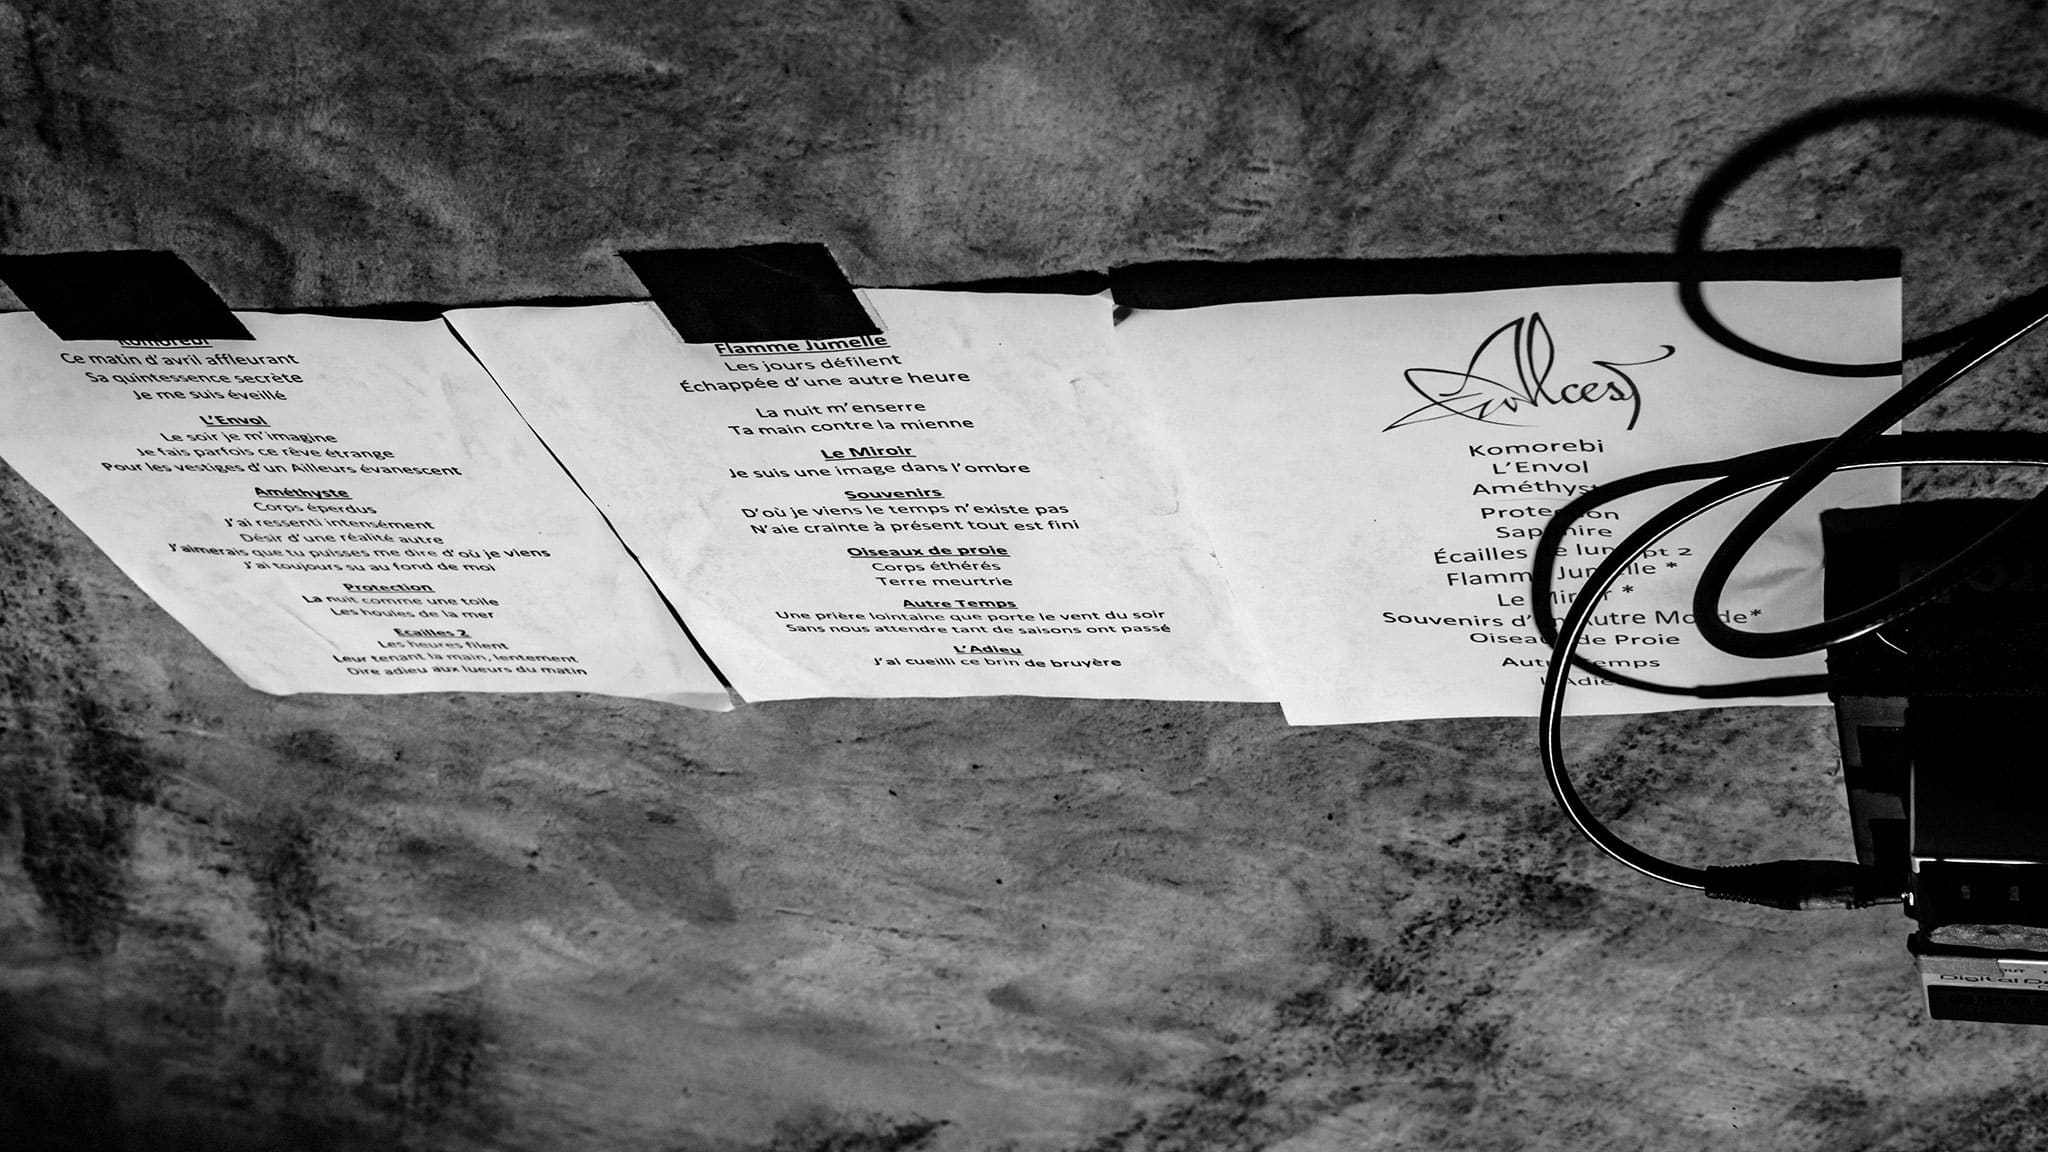 Komorebi
Ce matin d'avril affleurant
Sa quintessence secrète
Je me suis éveillé
L'Envol
Le soir je m'imagine
Je fais parfois ce rêve étrange
Pour les vestiges d'un Ailleurs évanescent
Améthyste
Corps éperdus
J'ai ressenti intensément
Désir d'une réalité autre
J'aimerais que tu puisses me dire d'où je viens
J'ai toujours su au fond de moi
Protection
La nuit comme une toile
Les houles de la mer
Ecailles 2
Les heures filent
Leur tenant la main, lentement
Dire adieu aux lueurs du matin
Flamme Jumelle
Les jours défilent
Échappée d'une autre heure
La nuit m'enserre
Ta main contre la mienne
Le Miroir
Je suis une image dans l'ombre
Souvenirs
D'où je viens le temps n'existe pas
N'aie crainte à présent tout est fini
Oiseaux de proie
Corps éthérés
Terre meurtrie
Autre Temps
Une prière lointaine que porte le vent du soir
Sans nous attendre tant de saisons ont passé
L'Adieu
J'ai cueilli ce brin de bruyère
Alcest
Komorebi
L'Envol
Améthyste
Protection
Sapphire
Écailles de lune pt 2
Flamme Jumelle *
Le Miroir *
Souvenirs d'un Autre Monde*
Oiseaux de Proie
Autre Temps
L'Adieu
OUT
Digital